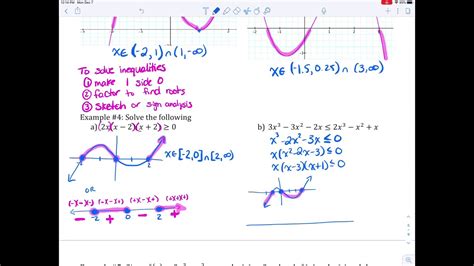 x∈(-2,1)∩(1,∞)
x∈(-1.5,0.25)∩(3,∞)
To solve inequalities
① make 1 side 0
② factor to find roots
③ sketch or sign analysis
Example #4: Solve the following
a) (2x)(x − 2)(x + 2) ≥ 0
x∈[-2,0]∩[2,∞)
-2 0 2
OR
(-)(-)(-) (-)(-)(+) (+)(-)(+) (+)(+)(+)
− + − +
-2 0 2
b) 3x³ − 3x² − 2x ≤ 2x³ − x² + x
x³-2x²-3x≤0
x(x²-2x-3)≤0
x(x-3)(x+1)≤0